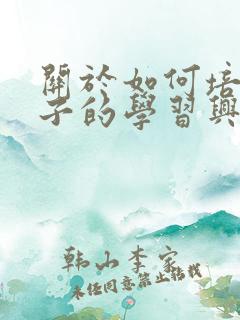 關於如何培
子的學習興
韩山李家
未经同意禁止转载